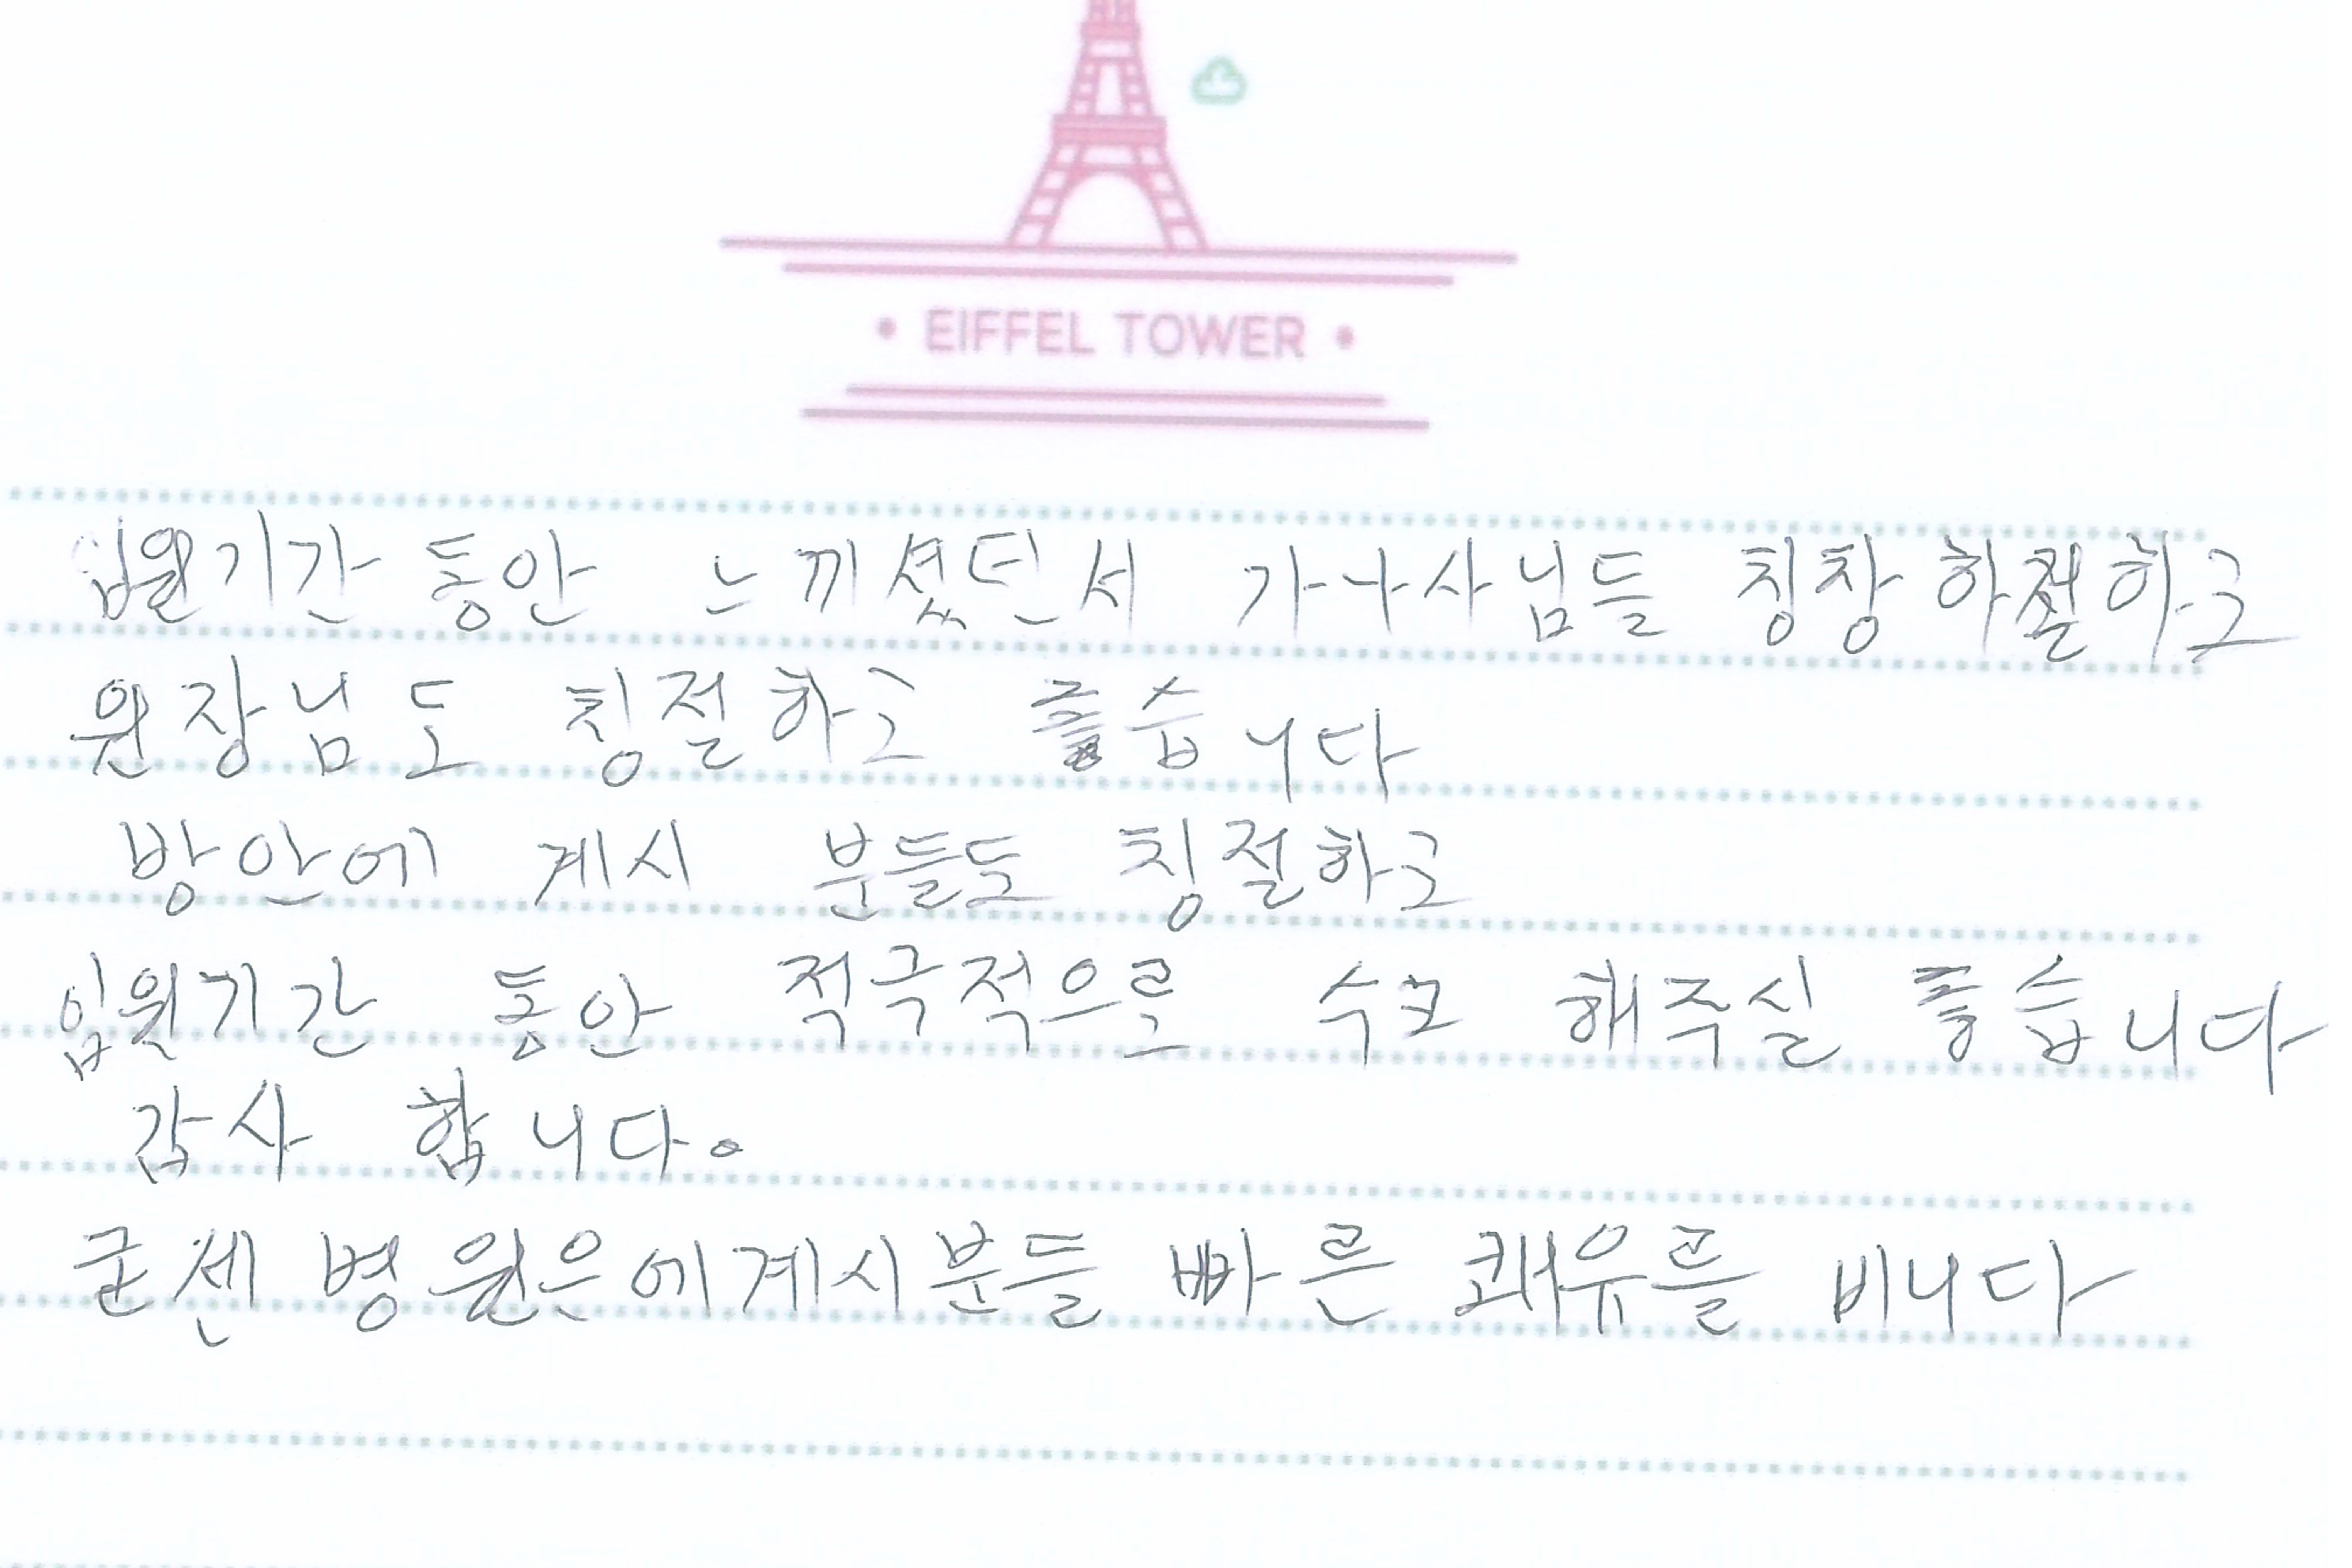 EIFFEL TOWER
입원기간 동안 느끼셨던서 가나사님들 칭창 하절하고
원장님도 칭절하고 좋습니다
방안에 계시 분들도 칭절하고
입원기간 동안 적극적으로 수고 해주실 좋습니다
감사 합니다.
군센 병원은에계시분들 빠른 쾌유를 비니다